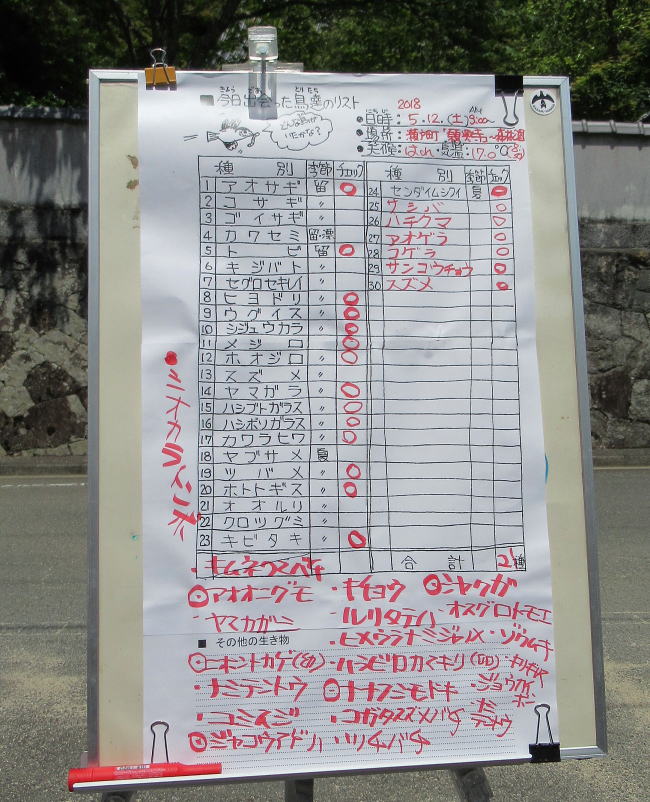 ■今日出会った鳥達のリスト
どんな鳥が
いたかな?
2018
●日時: 5.12.(土) AM 9:00~
●場所:
●天候: はれ・気温: 17.0℃
種 別 季節 チェック
1 アオサギ 留 ○
2 コサギ 〃
3 ゴイサギ 〃
4 カワセミ 留・漂
5 トビ 留 ○
6 キジバト 〃
7 セグロセキレイ 〃
8 ヒヨドリ 〃 ○
9 ウグイス 〃 ○
10 シジュウカラ 〃 ○
11 メジロ 〃 ○
12 ホオジロ 〃 ○
13 スズメ 〃
14 ヤマガラ 〃 ○
15 ハシブトガラス 〃 ○
16 ハシボソガラス 〃 ○
17 カワラヒワ 〃 ○
18 ヤブサメ 夏
19 ツバメ 〃 ○
20 ホトトギス 〃 ○
21 オオルリ 〃
22 クロツグミ 〃
23 キビタキ 〃 ○
種 別 季節 チェック
24 センダイムシクイ 夏 ○
25 サシバ ○
26 ハチクマ ○
27 アオゲラ ○
28 コゲラ ○
29 サンコウチョウ ○
30 スズメ ○
合 計 21種
●シオカラトンボ
・キムネクマバチ
⊙アオオニグモ ・キチョウ ⊙シャクガ
・ヤマカガシ ・ルリタテハ ・オスグロトモエ
■ その他の生き物 ・ヒメウラナミジャノメ・ゾウムシ
⊙ニホントカゲ(幼)・ハラビロカマキリ(卵)・キリギリス
・ナミテントウ ⊙ナナフシモドキ ・ジョウカイ
ボン
・コミスジ ・コガタスズメバチ ・ナミ
テントウ
⊙ジャコウアゲハ ・ツチバチ